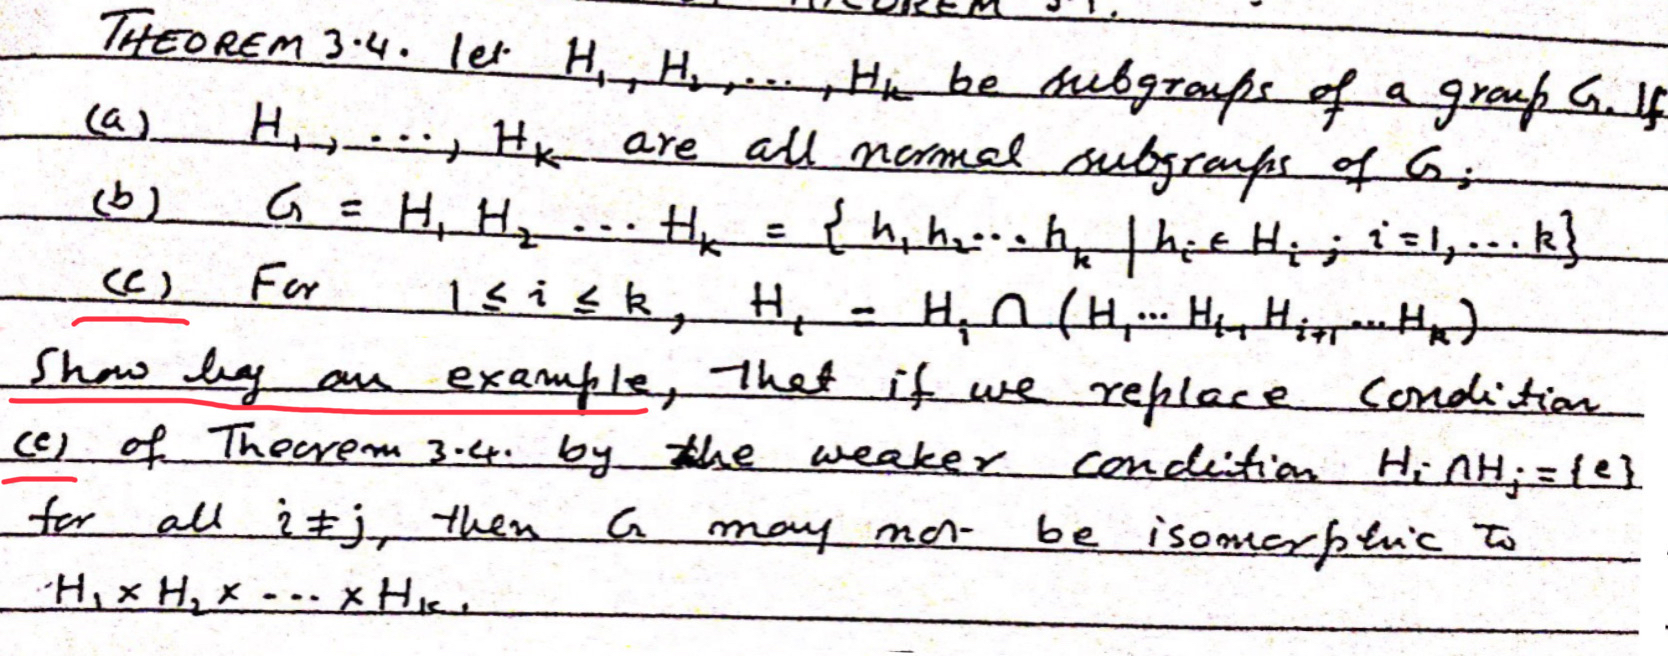 THEOREM 3.4. let H₁, H₂, ..., Hₖ be subgroups of a group G. If
(a) H₁, ..., Hₖ are all normal subgroups of G;
(b) G = H₁ H₂ ... Hₖ = { h₁ h₂ ... hₖ | hᵢ ∈ Hᵢ ; i=1, ... k}
(c) For 1 ≤ i ≤ k, Hᵢ - Hᵢ ∩ (H₁ ... Hᵢ₋₁ Hᵢ₊₁ ... Hₖ)
Show by an example, that if we replace condition
(c) of Theorem 3.4. by the weaker condition Hᵢ ∩ Hⱼ = {e}
for all i ≠ j, then G may not be isomorphic to
H₁ × H₂ × ... × Hₖ.